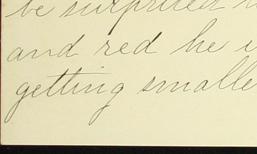 be surprised
and red he i
getting smalle